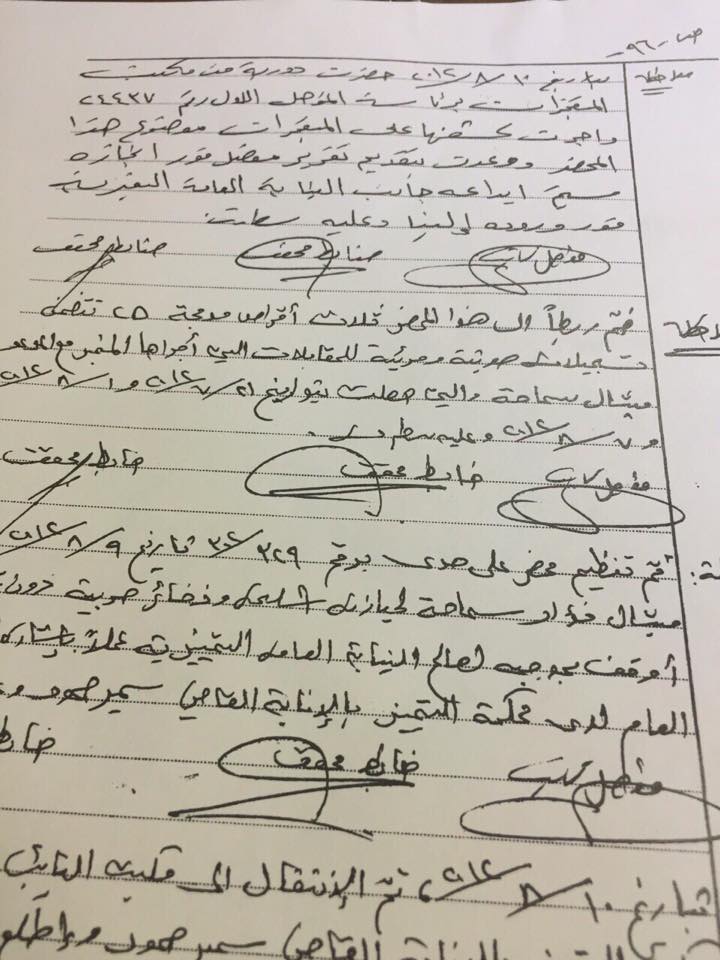 صـ ٩٦ـ
ملاحظة
بتاريخ ٢٠١٢/٨/١٠ حضرت دورية من مكتب
المتفجرات برئاسة المؤهل الاول رقم ٢٤٤٣٧
واجرت كشفها على المتفجرات موضوع هذا
المحضر ووعدت بتقديم تقرير مفصل فور انجازه
سيتم ايداعه جانب النيابة العامة التمييزية
فور وروده الينا وعليه سطرت.
مؤهل كاتب ضابط محقق ضابط محقق
ملاحظة
ضم ربطاً الى هذا المحضر ثلاث أقراص مدمجة CD تتضمن
تسجيلات صوتية ومرئية للمقابلات التي أجراها المخبر مع المدعو
ميشال سماحة والتي حصلت بتواريخ ٢٠١٢/٧/٢١ و ٢٠١٢/٨/١
و ٢٠١٢/٨/٧ وعليه سطرت.
مؤهل كاتب ضابط محقق ضابط محقق
تم تنظيم محضر على حدى برقم ٣٠٢/٣٢٩ تاريخ ٢٠١٢/٨/٩
ميشال فؤاد سماحة لحيازته اسلحة وذخائر حربية دون
أوقف بموجبه لصالح النيابة العامة التمييزية عملاً بإشارة
العام لدى محكمة التمييز بالإنابة القاضي سمير حمود
مؤهل كاتب ضابط محقق ضابط
بتاريخ ٢٠١٢/٨/١٠ تم الإنتقال الى مكتب النائب
التمييز بالإنابة القاضي سمير حمود